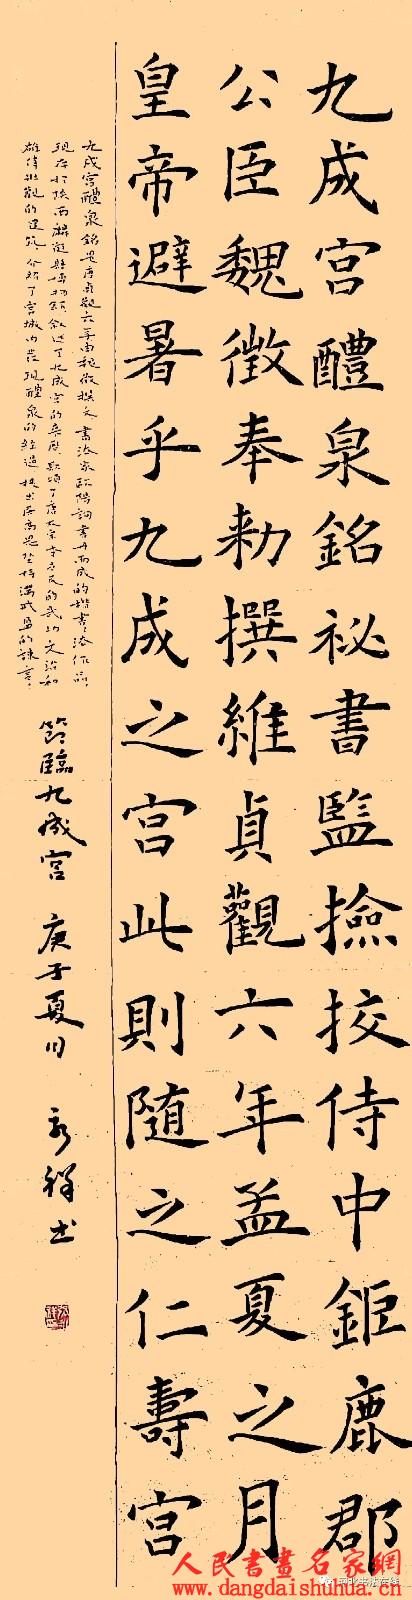 九成宮醴泉銘祕書監撿挍侍中鉅鹿郡
公臣魏徵奉勑撰維貞觀六年孟夏之月
皇帝避暑乎九成之宮此則隨之仁壽宮
九成宫醴泉銘是唐貞觀六年由魏徵撰文書法家歐陽詢書丹而成的楷書書法作品
现存於陕西麟遊縣博物館叙述了九成宫的来歷歌頌了唐太宗的武功文治和
雄偉壯觀的建筑介紹了宫城内發现醴泉的经過提出居高思坠持满戒盈的諫言
節臨九成宮 庚子夏月 書
人民書畫名家網
www.dangdaishuhua.cn
河北书法在线